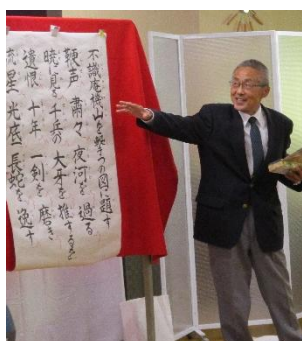 不識庵機山を撃つの図に題す
鞭声 肅々 夜河を過る
暁に見る千兵の大牙を擁するを
遺恨 十年 一剣を磨き
流星 光底 長蛇を逸す